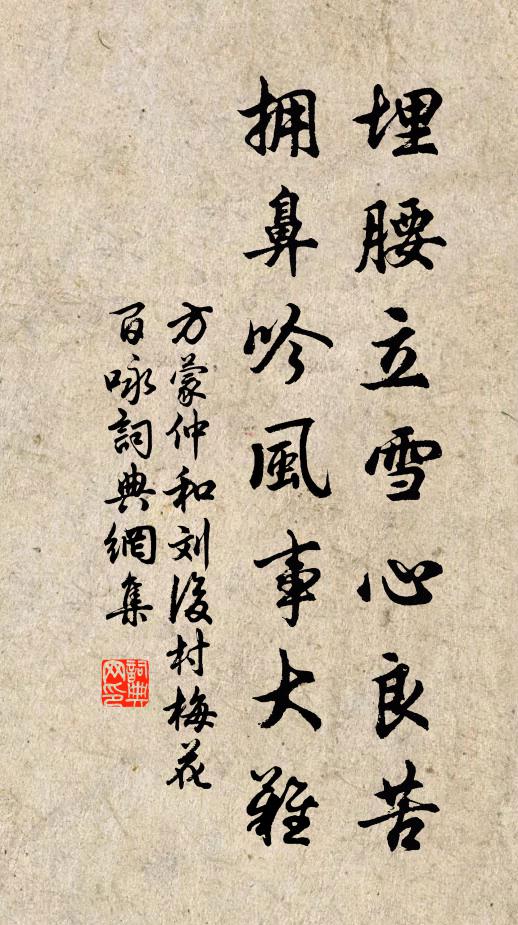 埋腰立雪心良苦
拥鼻吟风事大難
方蒙仲和刘後村梅花
百咏詞典網集
詞典网印